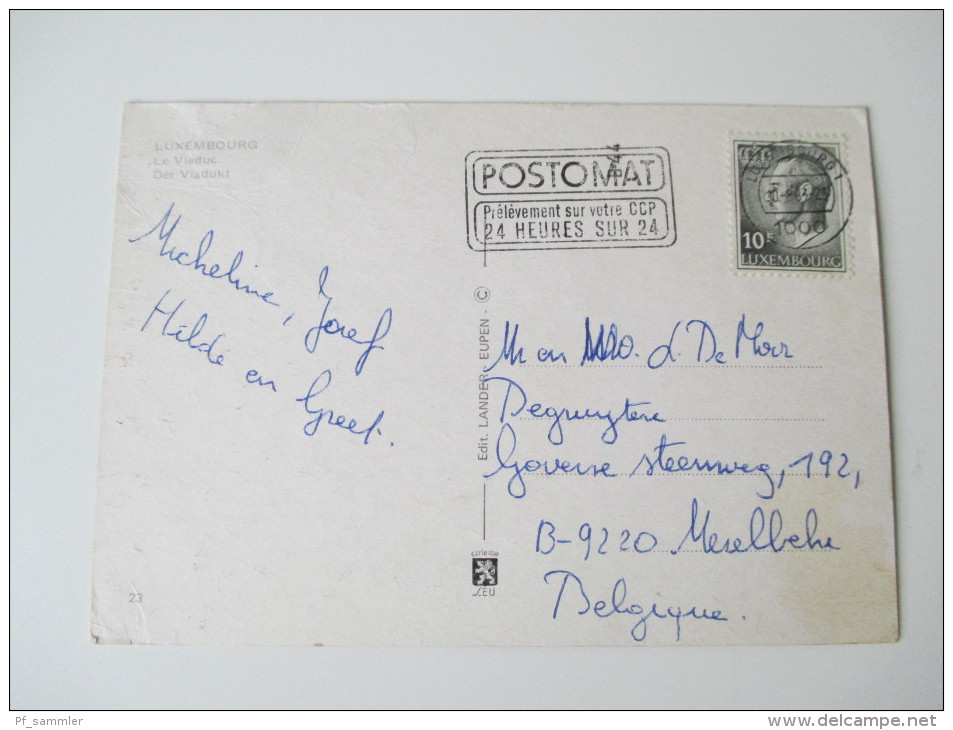 LUXEMBOURG
Le Viaduc
Der Viadukt
POSTOMAT
Prélèvement sur votre CCP
24 HEURES SUR 24
1000
10F
LUXEMBOURG
Micheline, Josef
Hilde en Greet.
Edit. LANDER - EUPEN - ©
Mr en
L. De Moor
Degruytere
Goverse steenweg, 192,
B-9220 Merelbeke
Belgique.
23
Pf_sammler
www.delcampe.net